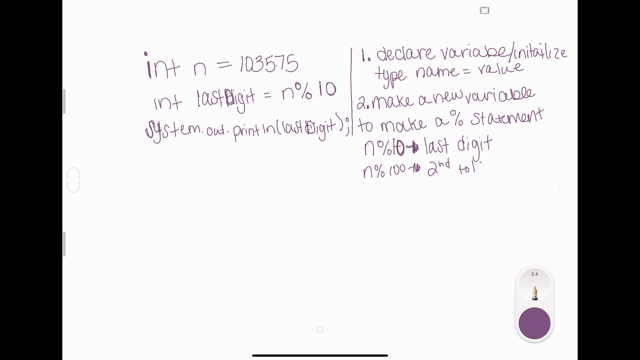 int n = 103575
int lastDigit = n%10
System.out.println(lastDigit);
1. declare variable/initailize
type name = value
2. make a new variable
to make a % statement
n%10→ last digit
n%100→ 2nd to l
2.4